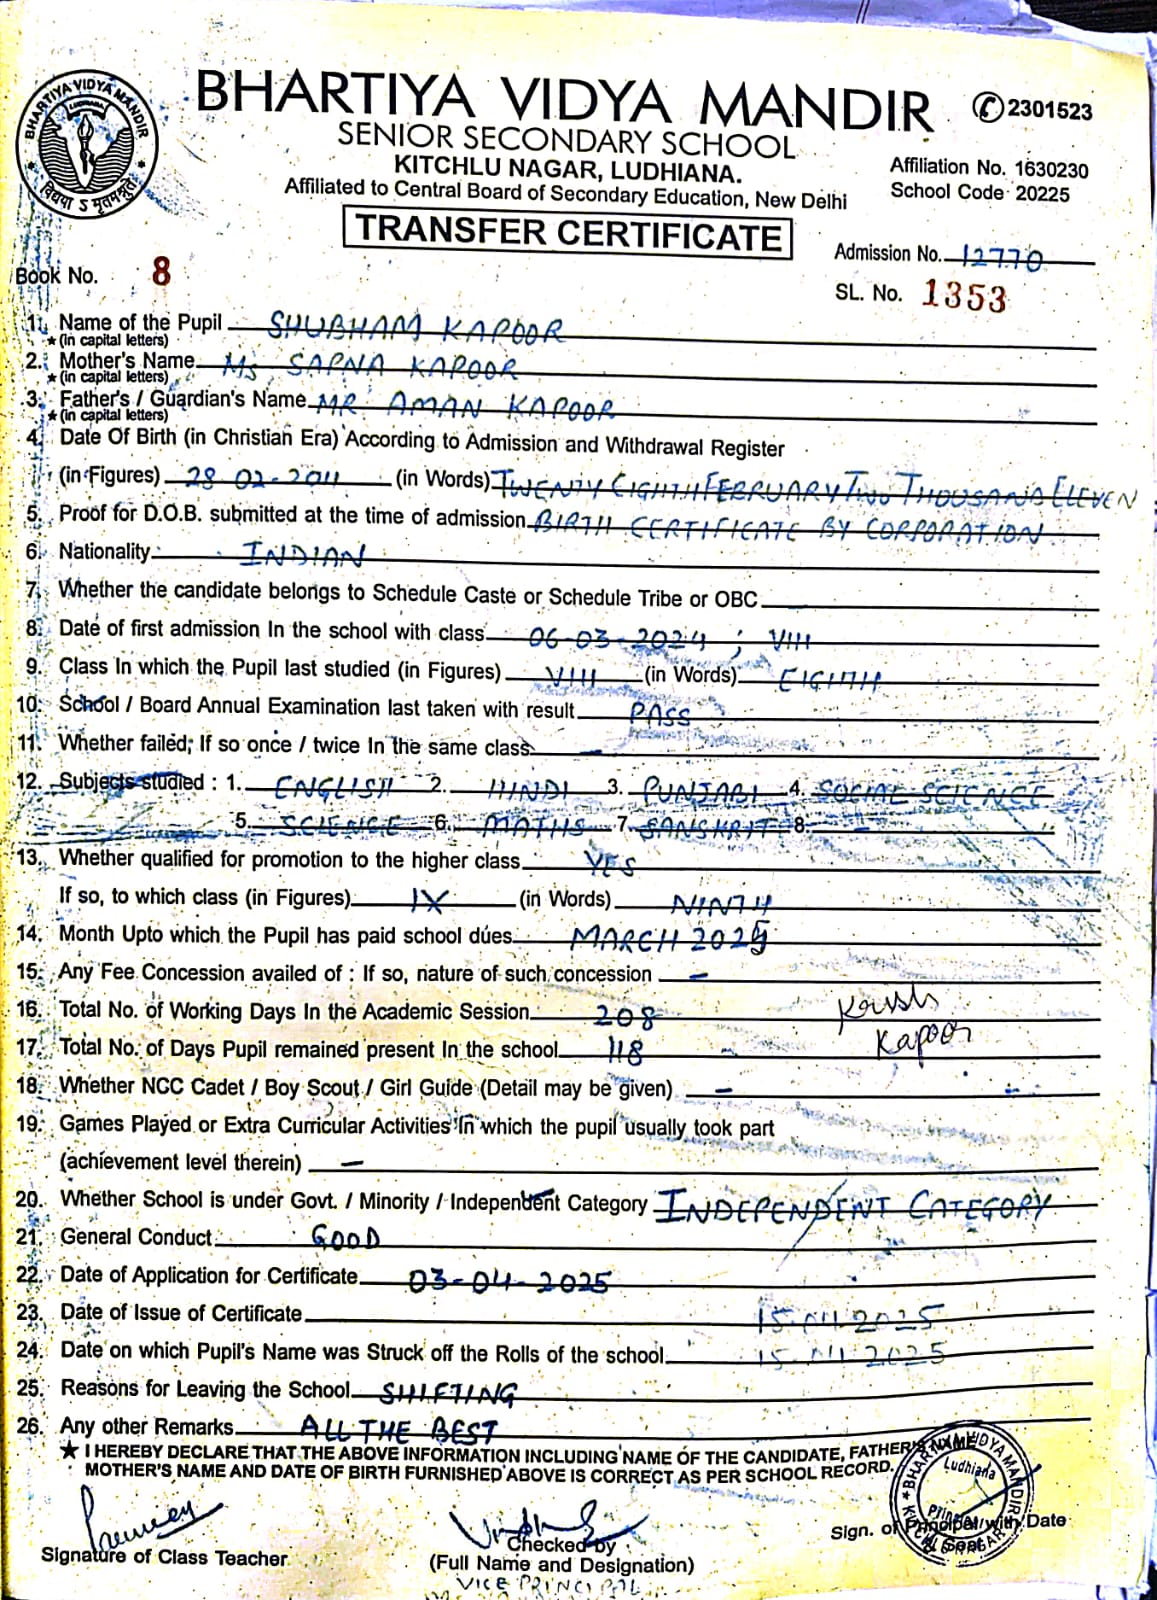 BHARTIYA VIDYA MANDIR
2301523
SENIOR SECONDARY SCHOOL
KITCHLU NAGAR, LUDHIANA.
Affiliation No. 1630230
Affiliated to Central Board of Secondary Education, New Delhi
School Code 20225
BHARTIYA VIDYA MANDIR
LUDHIANA
विद्यया ऽ मृतमश्नुते
TRANSFER CERTIFICATE
Admission No. 12770
Book No. 8
SL. No. 1353
1. Name of the Pupil SHUBHAM KAPOOR
★(in capital letters)
2. Mother's Name Ms SAPNA KAPOOR
★(in capital letters)
3. Father's / Guardian's Name MR AMAN KAPOOR
★(in capital letters)
4. Date Of Birth (in Christian Era) According to Admission and Withdrawal Register
(in Figures) 28-02-2011 (in Words) TWENTY EIGHTH FEBRUARY TWO THOUSAND ELEVEN
5. Proof for D.O.B. submitted at the time of admission BIRTH CERTIFICATE BY CORPORATION
6. Nationality INDIAN
7. Whether the candidate belongs to Schedule Caste or Schedule Tribe or OBC
8. Date of first admission In the school with class 06-03-2024 ; VIII
9. Class In which the Pupil last studied (in Figures) VIII (in Words) EIGHTH
10. School / Board Annual Examination last taken with result PASS
11. Whether failed; If so once / twice In the same class –
12. Subjects studied : 1. ENGLISH 2. HINDI 3. PUNJABI 4. SOCIAL SCIENCE
5. SCIENCE 6. MATHS 7. SANSKRIT 8. –
13. Whether qualified for promotion to the higher class YES
If so, to which class (in Figures) IX (in Words) NINTH
14. Month Upto which the Pupil has paid school dues MARCH 2025
15. Any Fee Concession availed of : If so, nature of such concession –
16. Total No. of Working Days In the Academic Session 208
Kapoor
17. Total No. of Days Pupil remained present In the school 118
18. Whether NCC Cadet / Boy Scout / Girl Guide (Detail may be given) –
19. Games Played or Extra Curricular Activities In which the pupil usually took part
(achievement level therein) –
20. Whether School is under Govt. / Minority / Independent Category INDEPENDENT CATEGORY
21. General Conduct GOOD
22. Date of Application for Certificate 03-04-2025
23. Date of Issue of Certificate 15-04-2025
24. Date on which Pupil's Name was Struck off the Rolls of the school 15-04-2025
25. Reasons for Leaving the School SHIFTING
26. Any other Remarks ALL THE BEST
★ I HEREBY DECLARE THAT THE ABOVE INFORMATION INCLUDING NAME OF THE CANDIDATE, FATHER'S NAME
MOTHER'S NAME AND DATE OF BIRTH FURNISHED ABOVE IS CORRECT AS PER SCHOOL RECORD.
BHARTIYA VIDYA MANDIR
Ludhiana
Principal
Sign. of Principal with Date
& Seal
Signature of Class Teacher
Checked by
(Full Name and Designation)
VICE PRINCIPAL